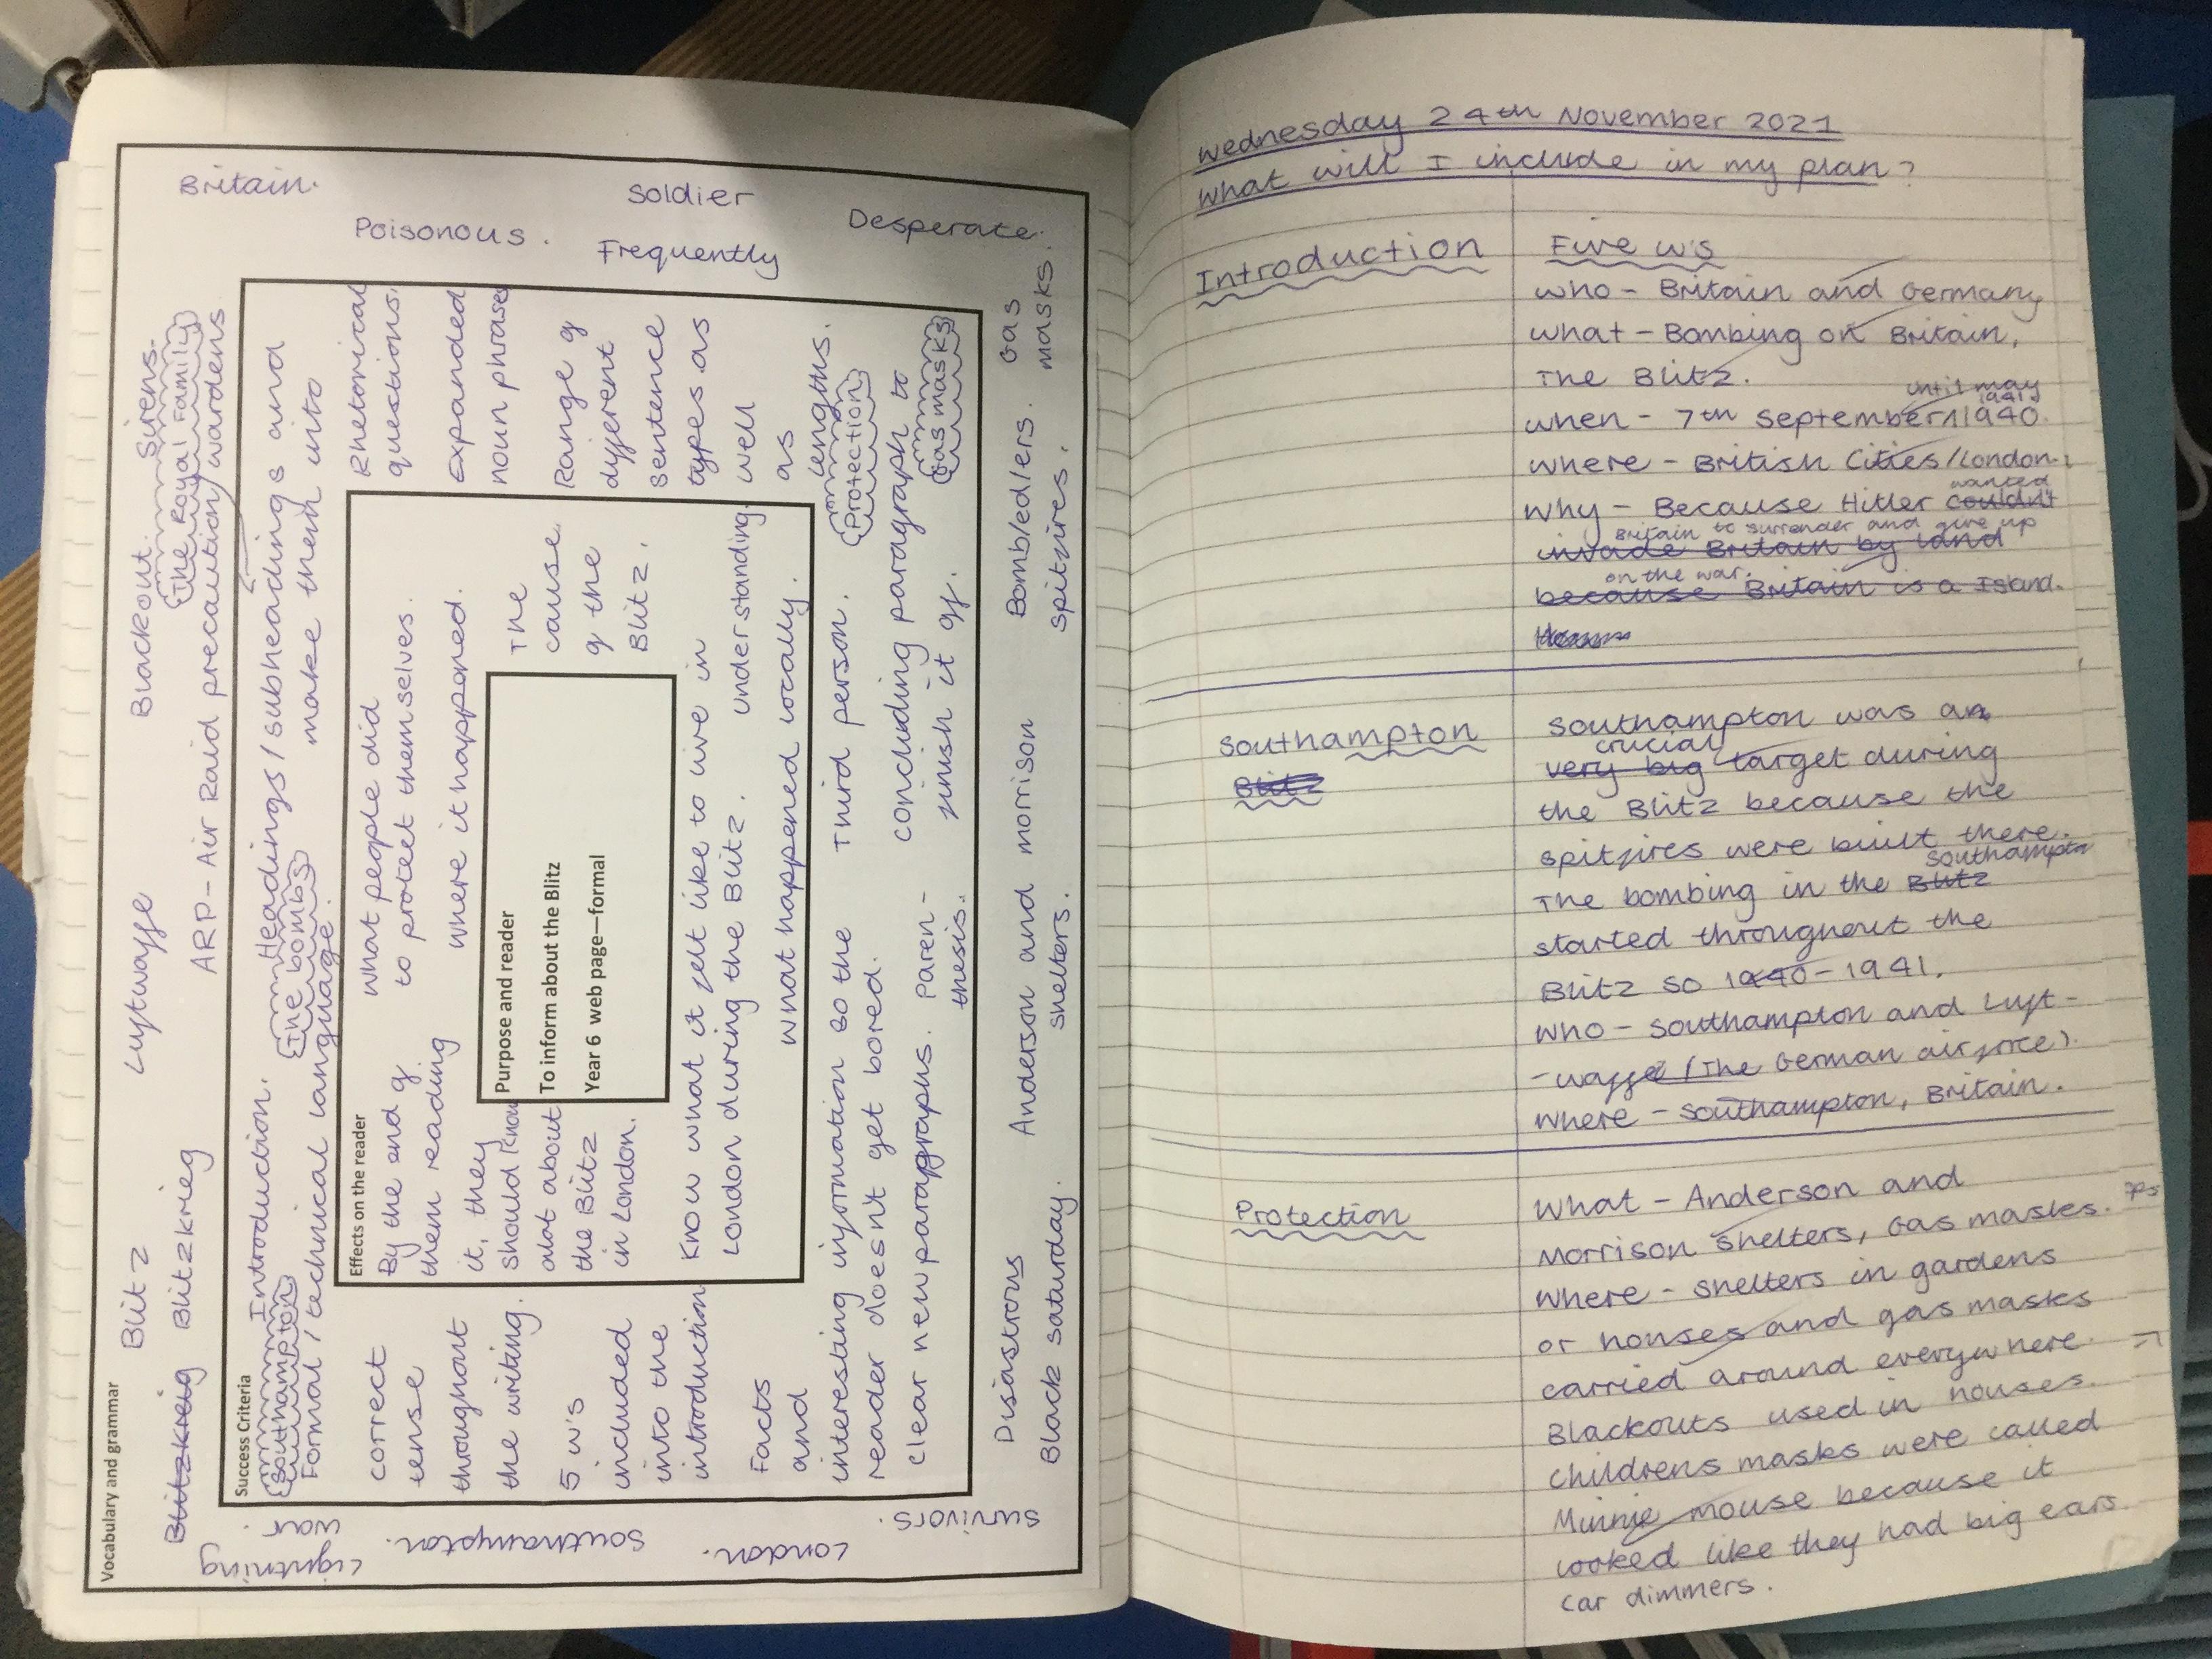 Vocabulary and grammar
Blitz
Luftwaffe
Blackout.
Sirens.
Britain.
Blitzkreig Blitzkrieg
ARP - Air Raid precaution / wardens
The Royal Family
Poisonous.
Soldier
Frequently
Desperate.
Lightning
war.
Southampton.
London.
Survivors.
Disastrous
Black Saturday.
Anderson and morrison
shelters.
Bombs/edlers.
spitfires.
Gas
masks.
Success Criteria
Introduction.
Headings / subheadings and
make them into
Southampton
The bombs
Formal / technical language.
Rhetorical
questions.
Expanded
noun phrases
Range of
different
sentence
types as
well
as
lengths.
Protection
correct
tense
throughout
the writing.
5 w's
included
into the
introduction
Facts
and
interesting information so the
reader doesn't get bored.
Third person.
clear new paragraphs.
Paren-
thesis.
concluding paragraph to
finish it off.
Gas masks
Effects on the reader
By the end of
them reading
it, they
should know
alot about
the Blitz
in London.
what people did
to protect themselves.
where it happened.
The
cause
of the
Blitz.
Know what it felt like to live in
London during the Blitz.
understanding
what happened locally.
Purpose and reader
To inform about the Blitz
Year 6 web page—formal
Wednesday 24th November 2021
What will I include in my plan?
Introduction
Five w's
who - Britain and Germany
what - Bombing on Britain,
The Blitz.
until may
1941
when - 7th September 1940.
where - British Cities/London.
wanted
Why - Because Hitler couldn't
Britain to surrender and give up
invade Britain by land
on the war.
because Britain is a Island.
Southampton
Blitz
Southampton was an
crucial
very big target during
the Blitz because the
spitfires were built there.
Southampton
The bombing in the Blitz
started throughout the
Blitz so 1940 - 1941.
Who - Southampton and Luft-
-waffe (The German airforce).
Where - Southampton, Britain.
Protection
What - Anderson and
Morrison shelters, Gas masks.
Where - shelters in gardens
or houses and gas masks
carried around everywhere.
Blackouts used in houses.
Childrens masks were called
Minnie mouse because it
looked like they had big ears.
Car dimmers.